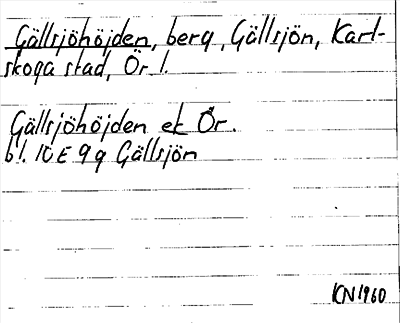 Gällsjöhöjden, berg, Gällsjön, Karl-
skoga stad, Ör l.
Gällsjöhöjden ek Ör.
bl. 10 E 9 g Gällsjön
KN 1960